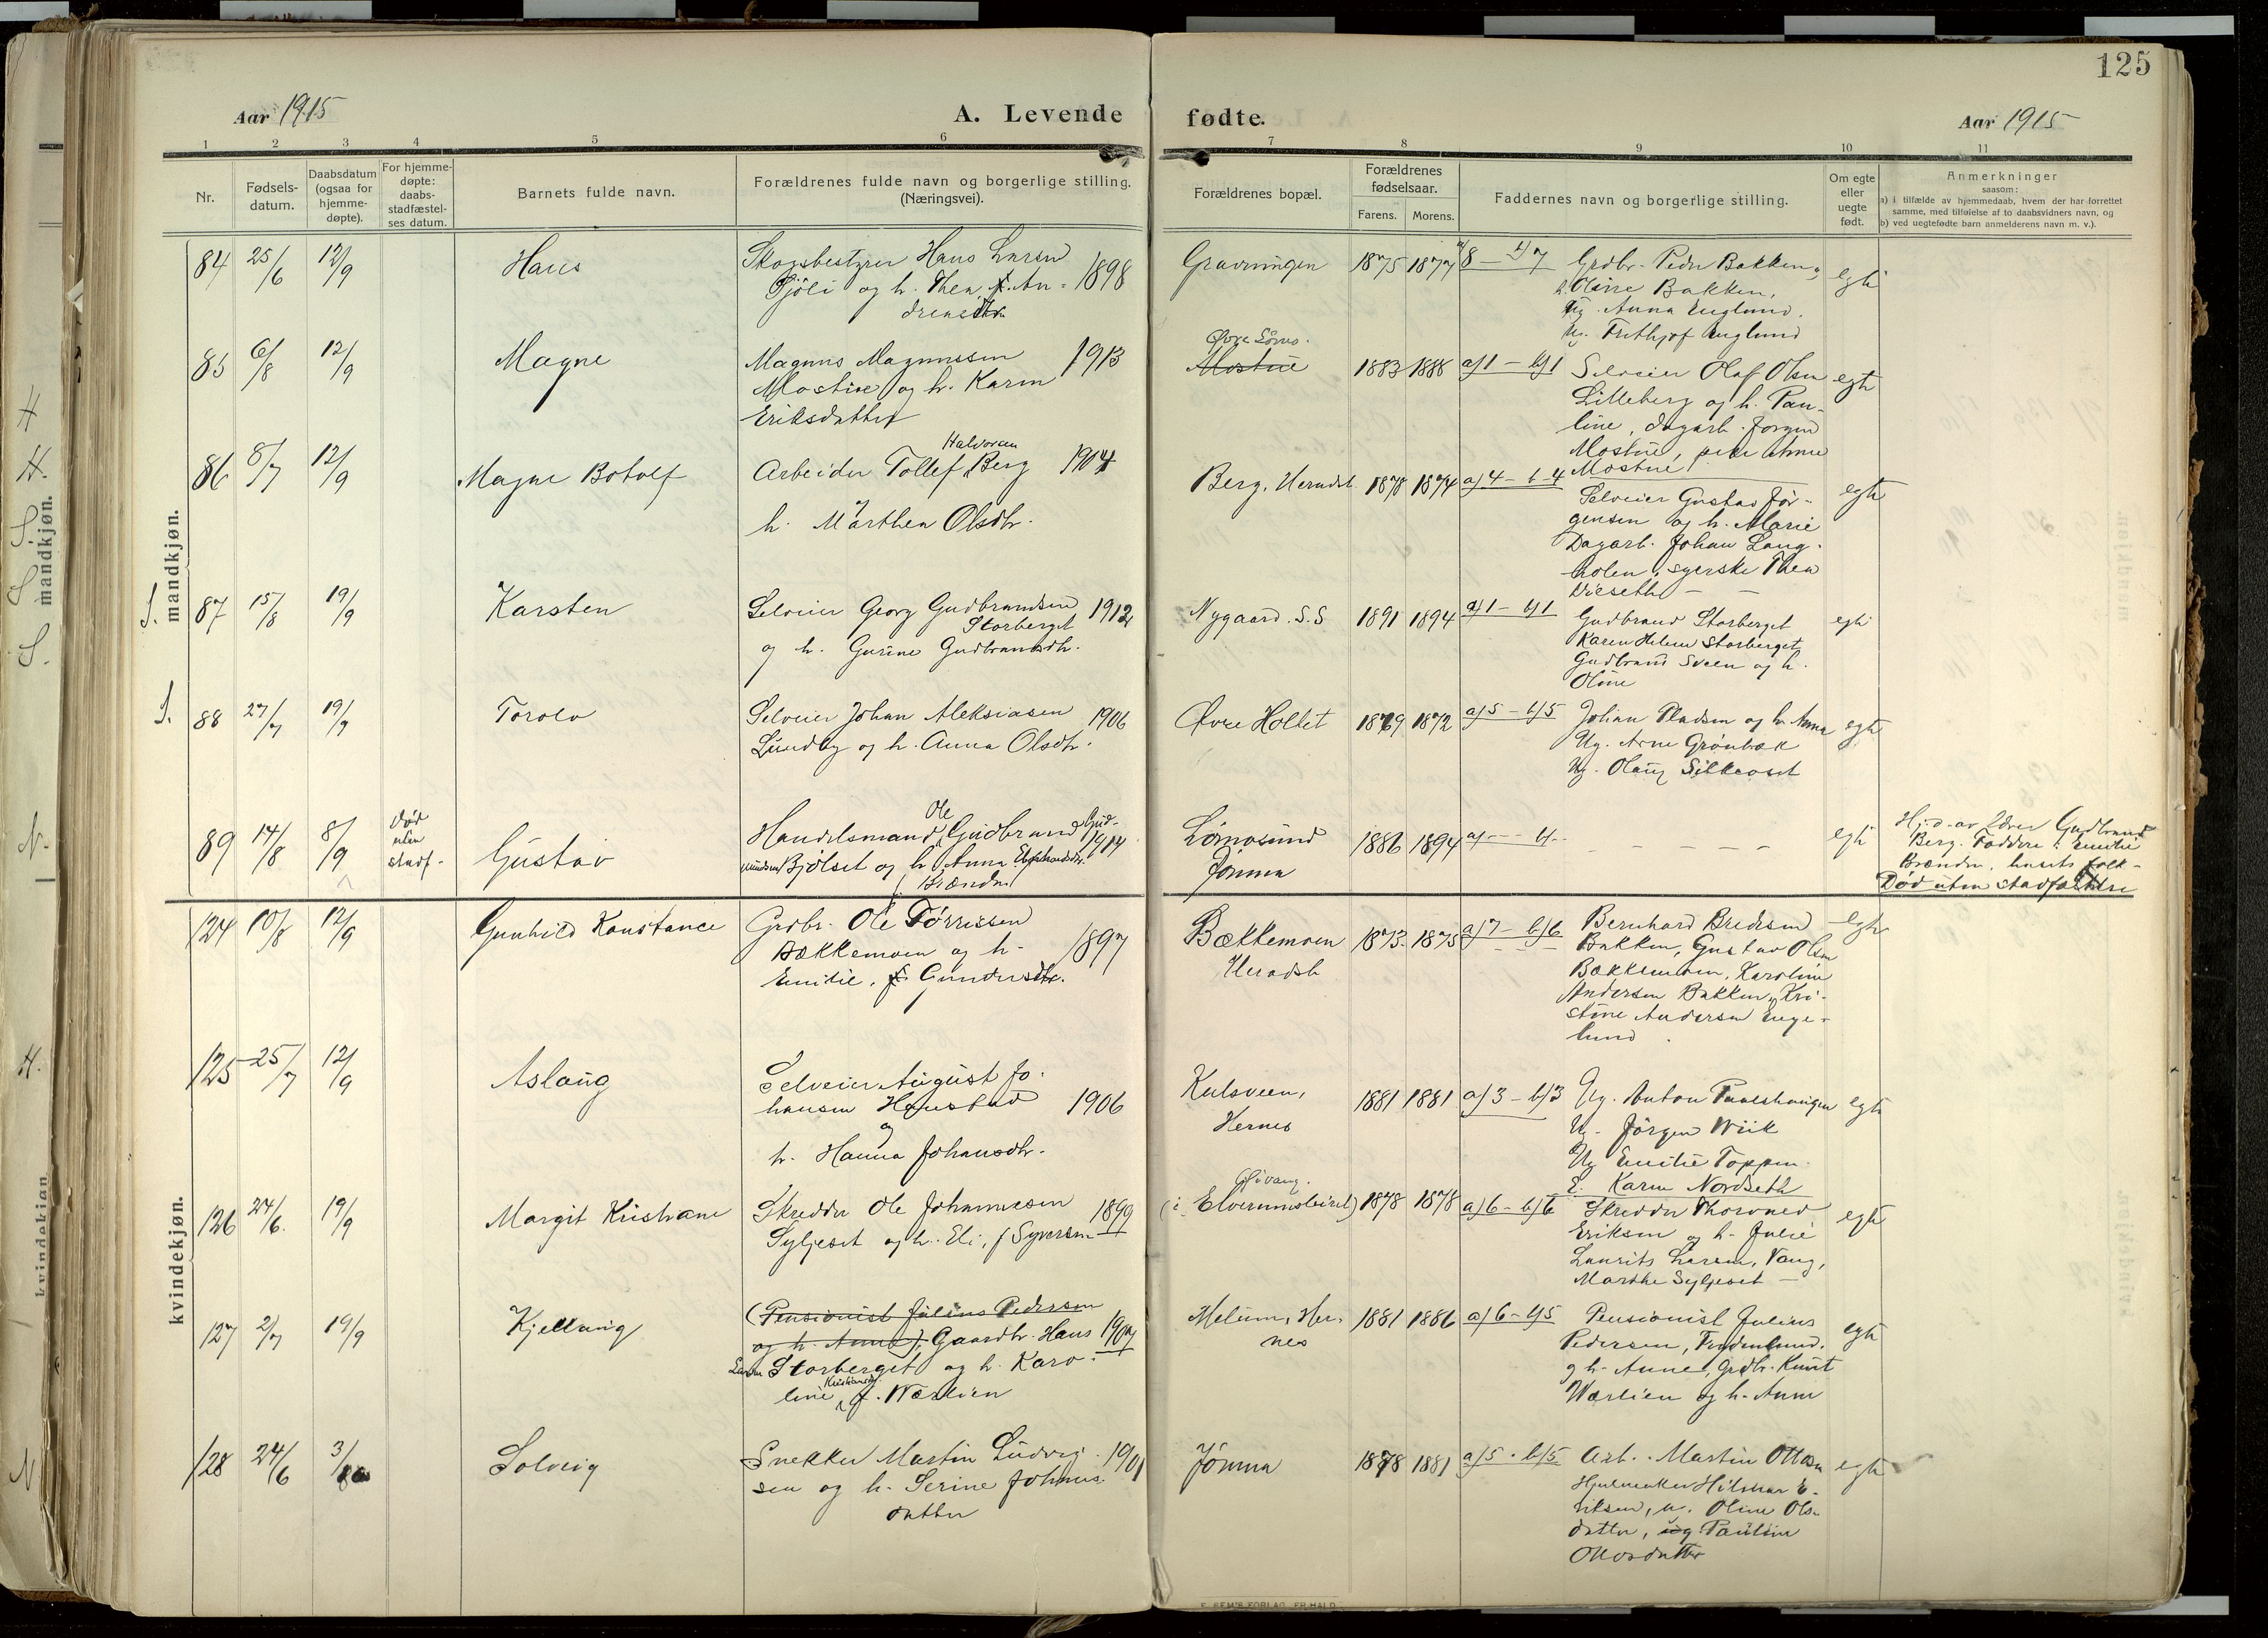 125
Aar 1915
A. Levende fødte.
Aar 1915
1 2 3 4 5 6 7 8 9 10 11
Nr.
Fødsels-
datum.
Daabsdatum
(ogsaa for
hjemme-
døpte).
For hjemme-
døpte:
daabs-
stadfæstel-
ses datum.
Barnets fulde navn.
Forældrenes fulde navn og borgerlige stilling.
(Næringsvei).
Forældrenes bopæl.
Forældrenes
fødselsaar.
Farens. Morens.
Faddernes navn og borgerlige stilling.
Om egte
eller
uegte
født.
Anmerkninger
saasom:
a) i tilfælde av hjemmedaab, hvem der har forrettet
samme, med tilføielse af to daabsvidners navn, og
b) ved uegtefødte barn anmelderens navn m. v.).
mandkjøn.
84 25/6 12/9 Hans
Skogsbestyrer Hans Larsen
Sjöli og h. Thea, f. An-
dreasdtr. 1898
Gravningen 1875 1877 8 — b/7
Grdbr. Peder Bakken,
h. Oline Bakken,
Ug. Anna Englund.
U. Frithjof Englund
egte
85 6/8 12/9 Magne
Magnus Magnussen 1913
Mostue og h. Karen
Eriksdatter
Øvre Löms.
Mostue 1883 1888 a/1 — b/1
Selveier Olaf Olsen
Lilleberg og h. Pau-
line, dagarb. Jörgen
Mostue, pike Anne
Mostue
egte
86 8/7 12/9 Magne Botolf
Halvorsen
Arbeider Tollef Berg 1904
og
h. Marthea Olsdtr.
Berg, Heradsb. 1878 1874 a/4 — b-4
Selveier Gustav Jör-
gensen og h. Marie
Dagarb. Johan Lang-
holen, syerske Thea
Diseth — —
egte
S. 87 15/8 19/9 Karsten
Selveier Georg Gudbrandsen 1912
Storberget
og h. Gurine Gudbrandsdtr.
Nygaard. S.S 1891 1894 a/1 — b/1
Gudbrand Storberget
Karen Helene Storberget
Gudbrand Sveen og h.
Oline
egte
S. 88 27/7 19/9 Torolv
Selveier Johan Aleksiasen 1906
Lundby og h. Anna Olsdtr.
Øvre Holtet 1869 1872 a/5 — b/5
Johan Pladsen og h. Anna
Ug. Arne Grönbæk
Ug. Olaug Silkeoset
egte
89 14/8 8/9
Död
uten
stadf.
Gustav
Ole
Handelsmand Gudbrand Gud-
mundsen Bjölset og h. Anna 1914
Brænden
Lömosund
Jömna 1886 1894 a/— b/—
egte
Hj.d. av lærer Gudbrand
Berg. Faddere: Emilie
Brænden, husets folk.
Död uten stadfæstelse
kvindekjøn.
124 10/8 12/9 Gunhild Konstance
Grdbr. Ole Törrissen
Bækkemoen og h. 1897
Emilie, f. Gundersdtr.
Bækkemoen
Heradsb. 1873 1875 a/7 — b/6
Bernhard Bredesen
Bakken, Gustav Olsen
Bækkemoen, Karoline
Andersen Bakken, Kri-
stine Andersen Enge-
lund.
egte
125 25/7 12/9 Aslaug
Selveier August Jo-
hansen Haustad 1906
og
h. Hanna Johansdtr.
Kulsveen,
Hernes 1881 1881 a/3 — b/3
Ug. Anton Paaleshaugen
U. Jörgen Wiik
Ug Emilie Toppen.
E. Karen Nordseth
egte
126 24/6. 19/9 Margit Kristiane
Skredder Ole Johannesen 1899
Syljeset og h. Eli, f Syversen
(i Elverumsleiret) 1878 1878 a/6 — b/6
Skredder Thorvald
Eriksen og h. Julie
Laurits Larsen, Vang,
Marthe Syljeset —
egte
127 2/7 19/9 Kjellaug
(Pensionist Julius Pedersen
og h. Anne), Gaardbr. Hans 1907
Larsen Storberget og h. Karo-
Kristiansdtr.
line, f. Wærlien
Melum, Her-
nes 1881 1886 a/6 — b/5
Pensionist Julius
Pedersen, Frydenlund.
og h. Anne, Grdbr. Knut
Wærlien og h. Anne
egte
128 24/6 3/10 Solveig
Snekker Martin Ludvig- 1901
sen og h. Serine Johans-
datter
Jömna 1878 1881 a/5 . b/5
Arb. Martin Ottosen
Hjulmaker Hilmar E-
riksen, u. Oline Ols-
datter, ug Pauline
Ottosdatter
egte
E. SEM'S FORLAG, FR.HALD.